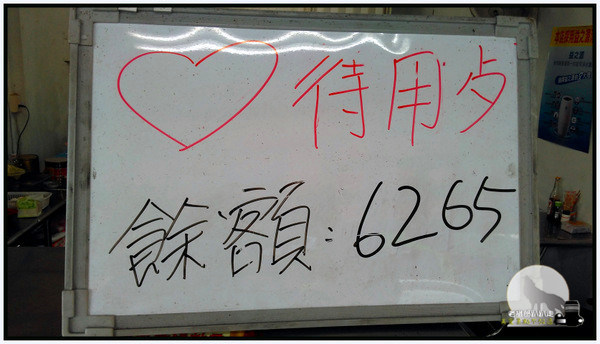 待用歺
餘額：6265